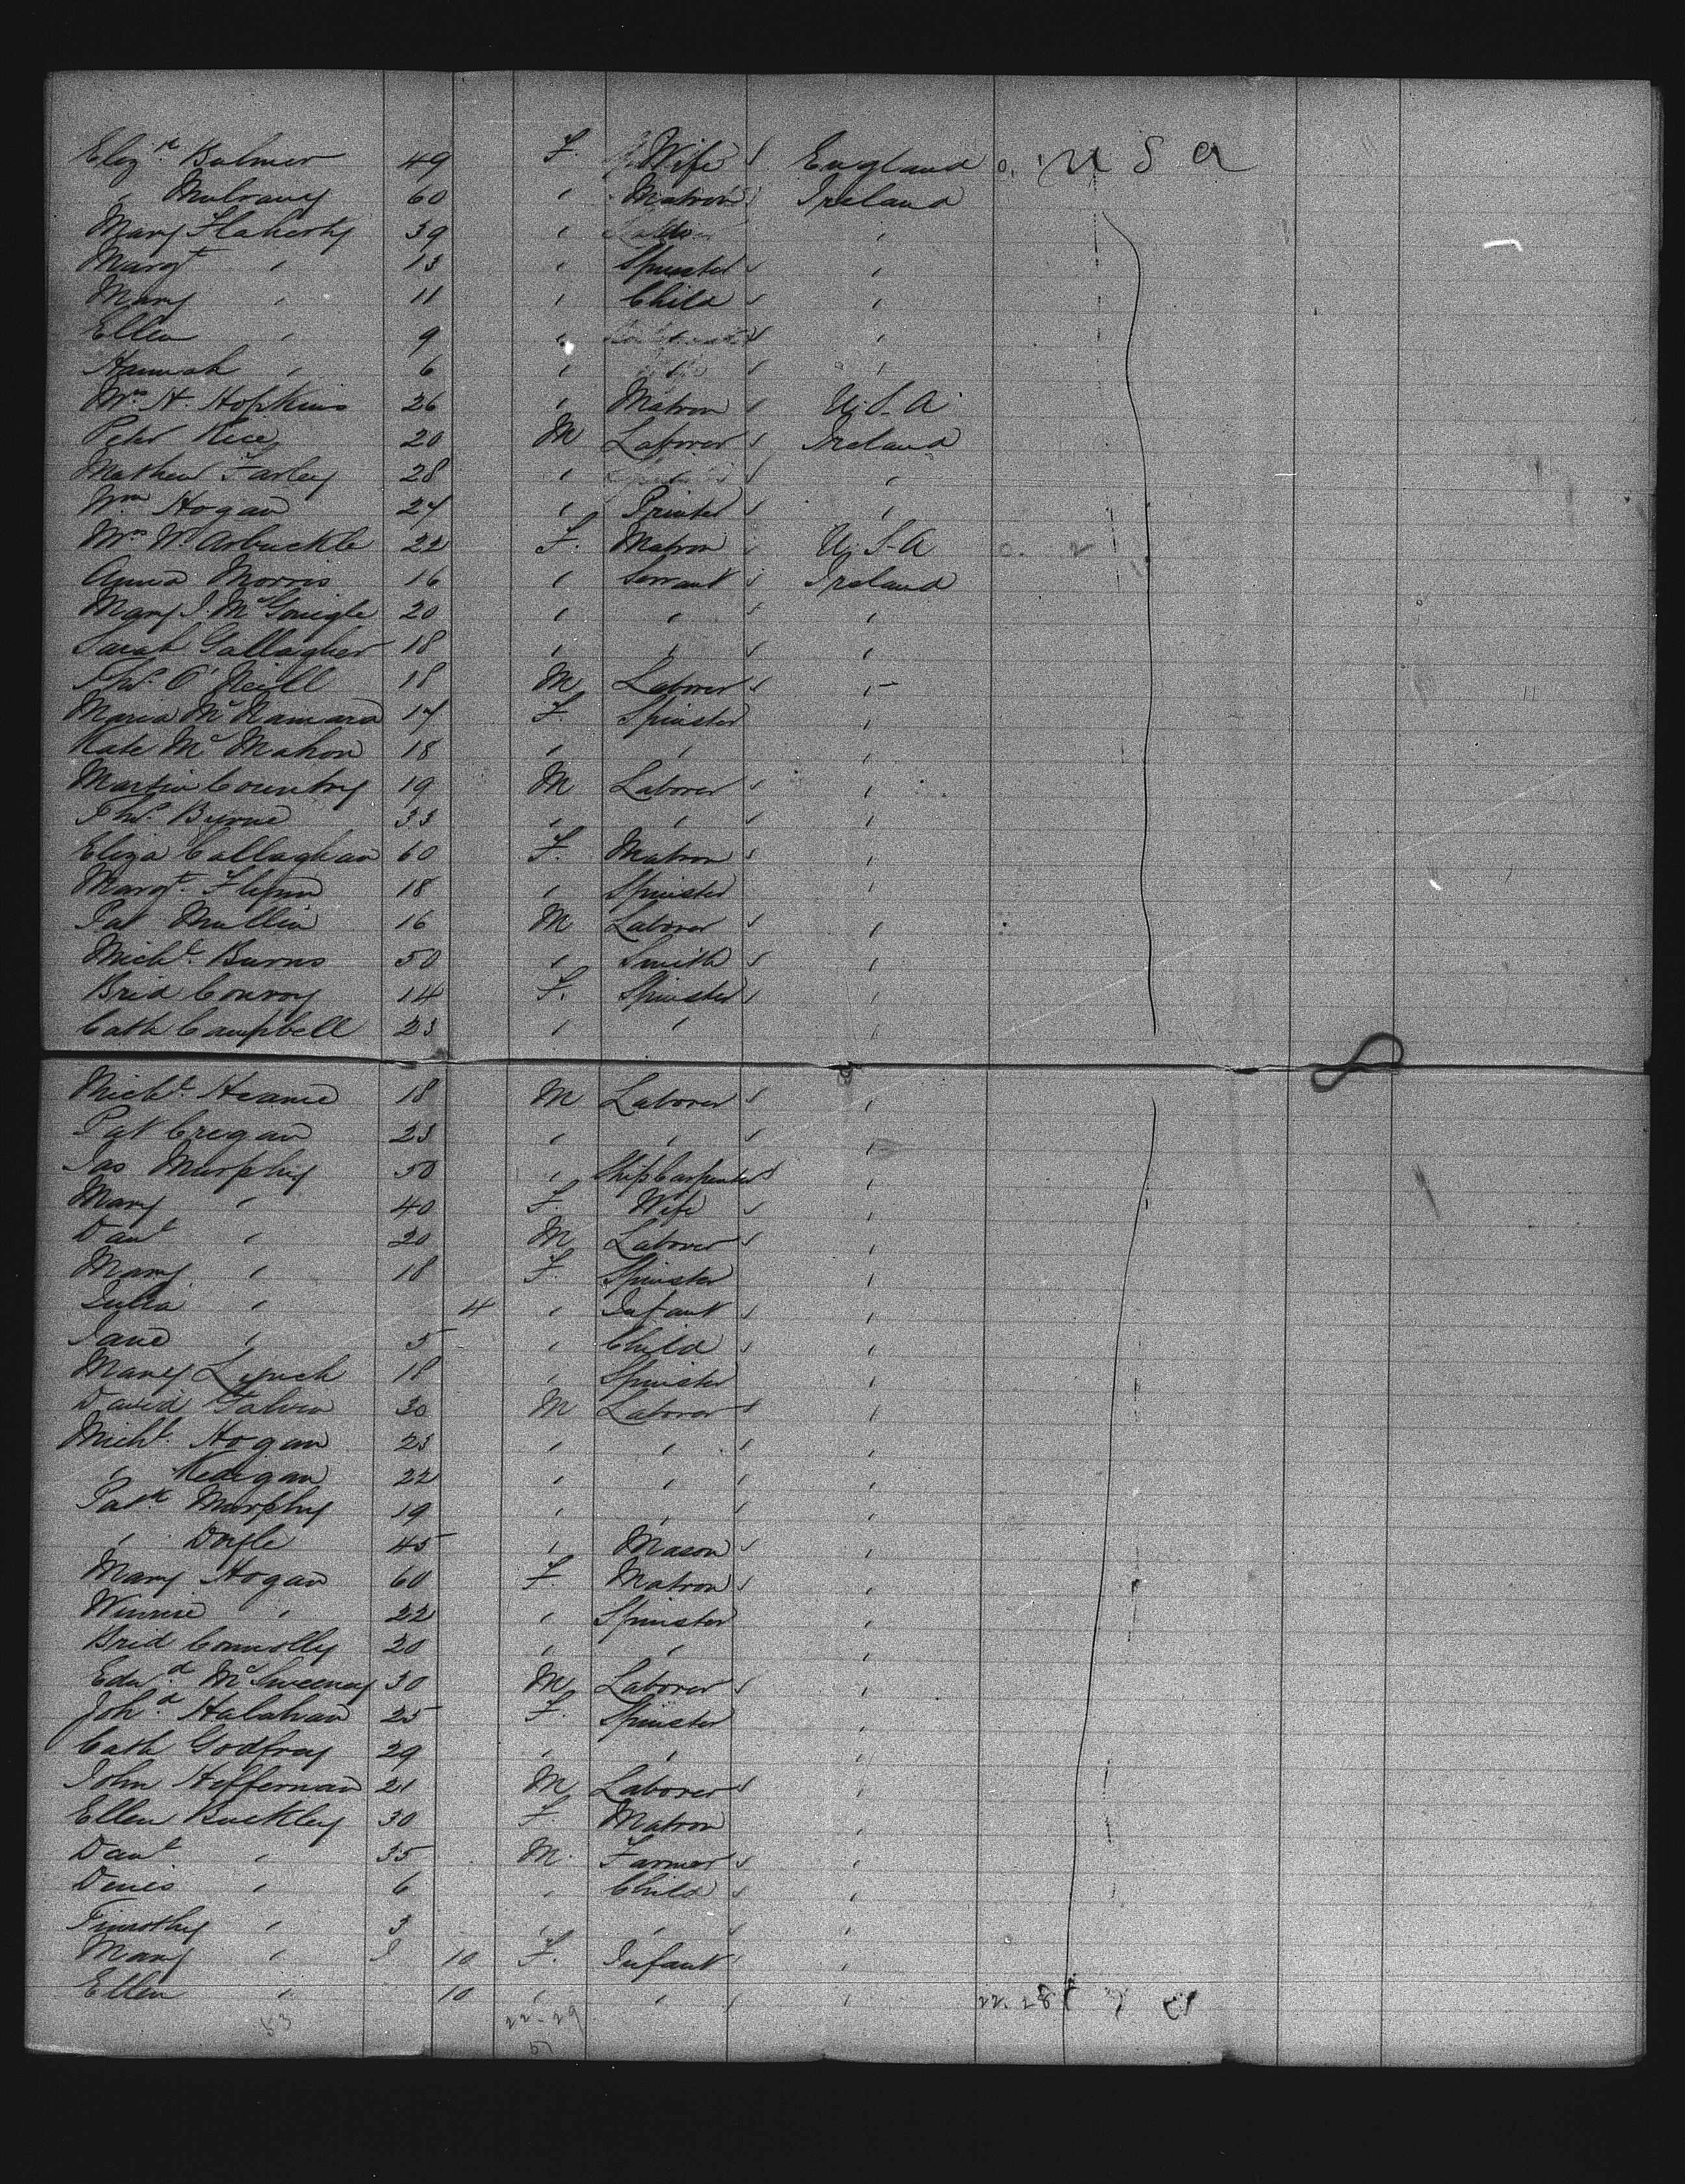 Eliz.th Bulmer 49 F. Wife England U S A
" Mulraney 60 " Matron Ireland
Mary Flaherty 39 " "
Margt " 13 " Spinster "
Mary " 11 " Child "
Ellen " 9 " "
Hannah " 6 " "
Mrs H. Hopkins 26 " Matron U.S.A
Peter Rice 20 M Laborer Ireland
Mathew Farley 28 " "
Wm Hogan 24 " Printer "
Mrs W. Arbuckle 22 F. Matron U.S.A
Anna Morris 16 " Servant Ireland
Mary J. McGonigle 20 " " "
Sarah Gallagher 18 " " "
Thos. O'Neill 18 M Laborer "
Maria McNamara 17 F. Spinster "
Kate McMahon 18 " " "
Martin Country 19 M Laborer "
Thos. Byrne 33 " " "
Eliza Callaghan 60 F. Matron "
Margt. Flynn 18 " Spinster "
Pat Mullin 16 M Laborer "
Michl. Burns 50 " Smith "
Brid Conroy 14 F. Spinster "
Cath Campbell 23 " " "
Michl. Hearne 18 M Laborer "
Pat Cregan 23 " " "
Jas Murphy 50 " Ship Carpenter "
Mary " 40 F. Wife "
Danl " 20 M Laborer "
Mary " 18 F. Spinster "
Julia " 4 " Infant "
Jane " 5 " Child "
Mary Lynch 18 " Spinster "
David Galvin 30 M Laborer "
Michl. Hogan 23 " " "
" Keaigan 22 " " "
Patk Murphy 19 " " "
" Doyle 45 " Mason "
Mary Hogan 60 F. Matron "
Winnie " 22 " Spinster "
Brid Connolly 20 " " "
Edwd. McSweeney 30 M Laborer "
Joha. Halahan 25 F. Spinster "
Cath Godfrey 29 " " "
John Heffernan 21 M Laborer "
Ellen Buckley 30 F. Matron "
Danl " 35 M. Farmer "
Denis " 6 " Child "
Timothy " 3 " " "
Mary " 10 F. Infant "
Ellen " 10 " " " 22. 28
53 22-29
51